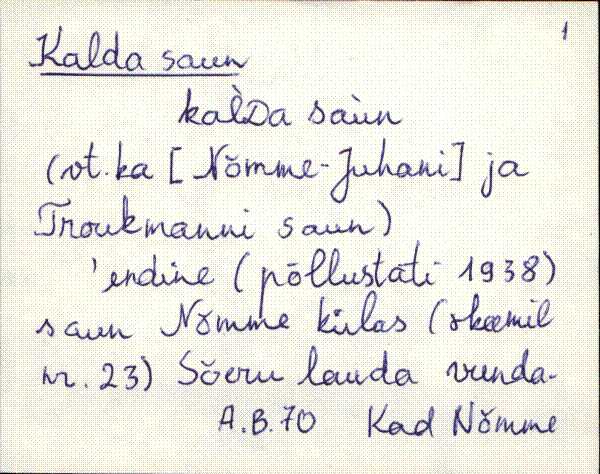 1
Kalda saun
kal̀Da saùn
(vt. ka [Nõmme-Juhani] ja
Troukmanni saun)
'endine (põllustati 1938)
saun Nõmme külas (skeemil
nr. 23) Sõeru lauda vunda-
A.B. 70 Kad Nõmme